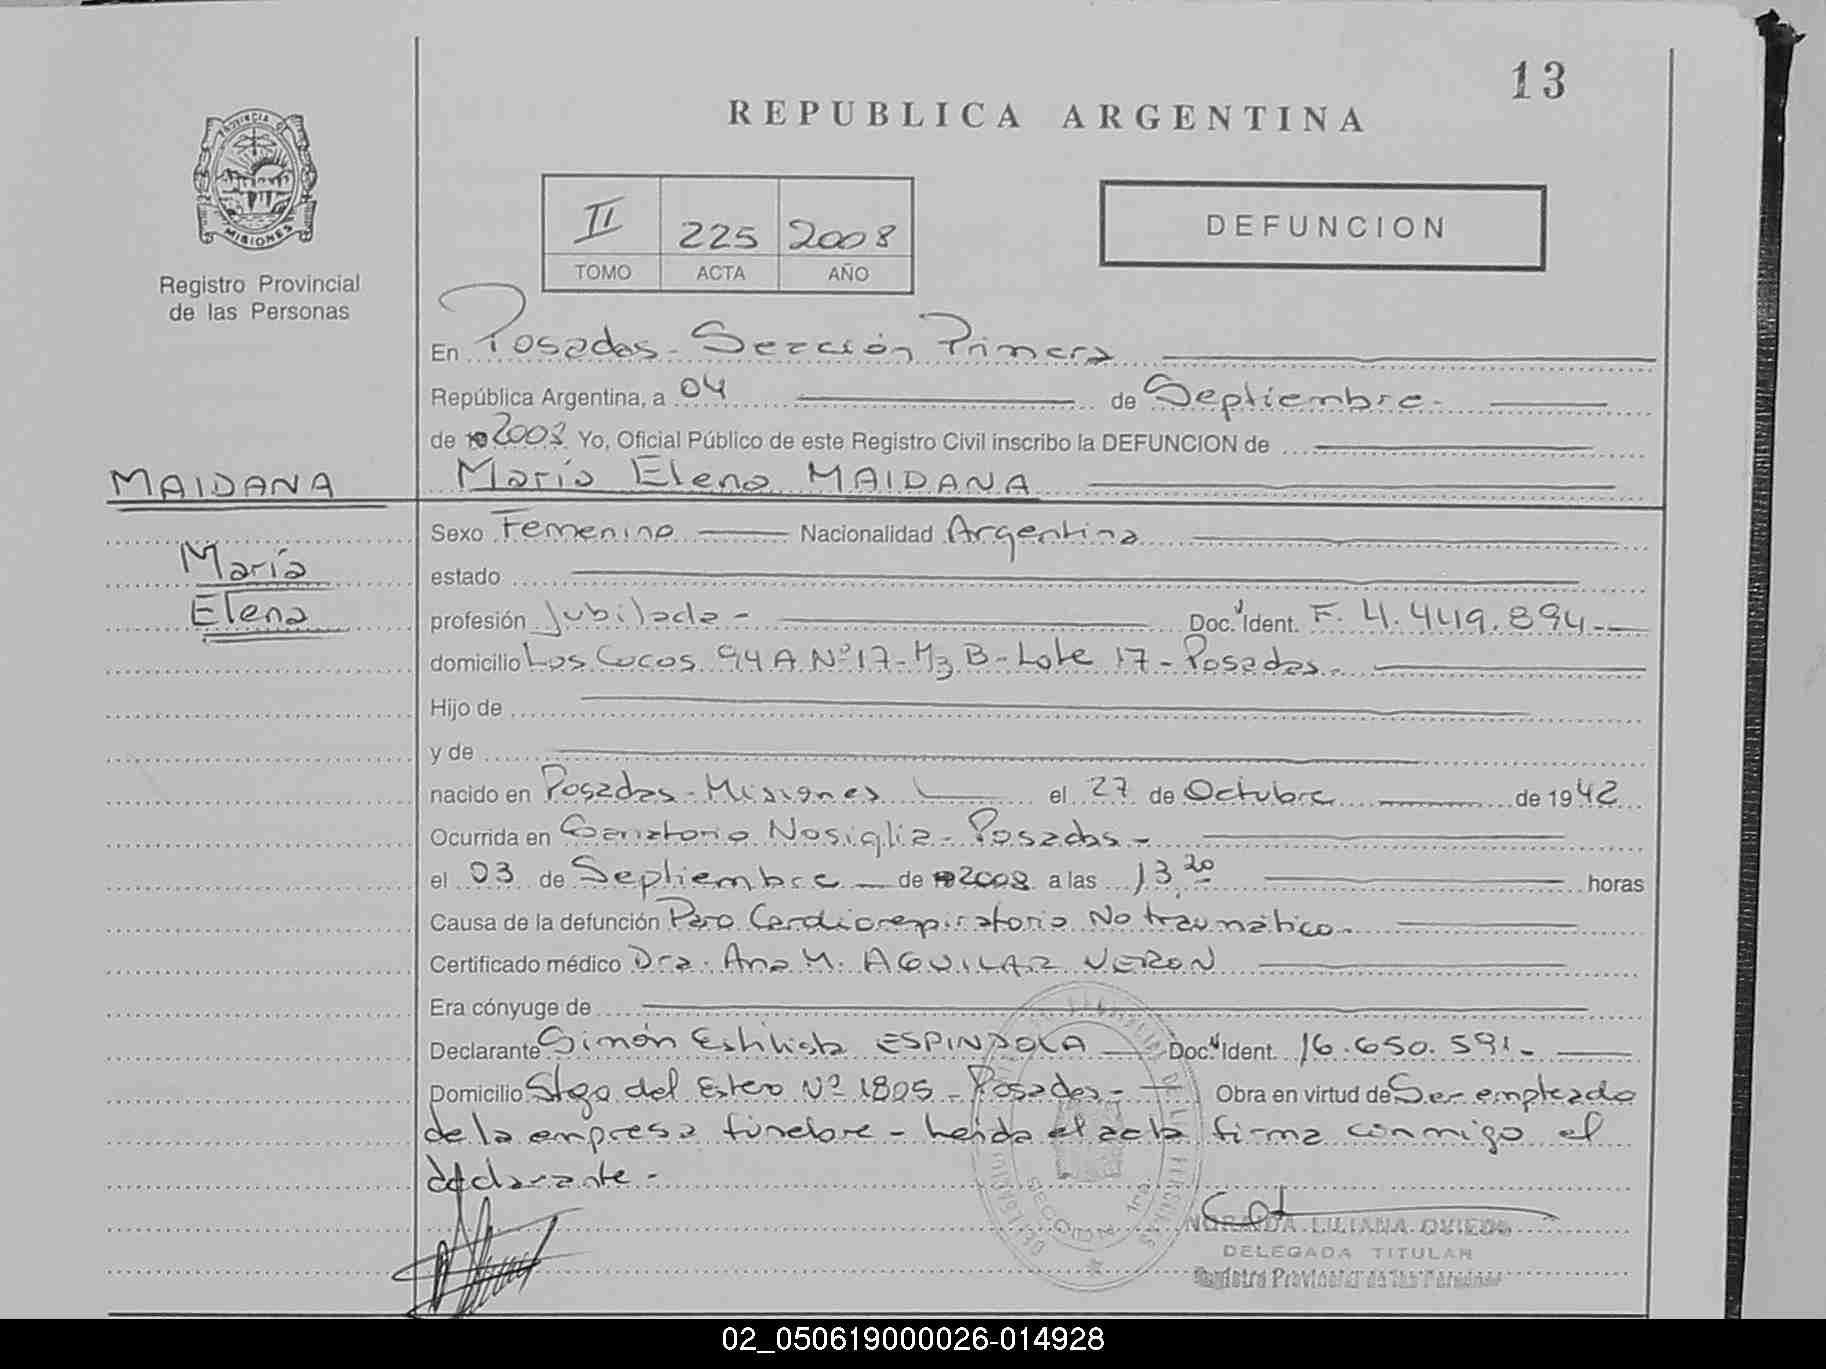 13
REPUBLICA ARGENTINA
PROVINCIA DE
MISIONES
Registro Provincial
de las Personas
II 225 2008
TOMO ACTA AÑO
DEFUNCION
En Posadas - Sección Primera
República Argentina, a 04 de Septiembre -
de 2008 Yo, Oficial Público de este Registro Civil inscribo la DEFUNCION de
MAIDANA
María Elena MAIDANA
Sexo Femenino Nacionalidad Argentina
María
estado
Elena
profesión Jubilada - Doc. Ident. F. 4.449.894 -
domicilio Los Cocos 94 A Nº 17 - Mz B - Lote 17 - Posadas -
Hijo de
y de
nacido en Posadas - Misiones el 27 de Octubre de 1942
Ocurrida en Sanatorio Nosiglia - Posadas -
el 03 de Septiembre de 2008 a las 13,20 horas
Causa de la defunción Paro Cardiorrespiratorio No traumático -
Certificado médico Dra. Ana M. AGUILAR VERON
Era cónyuge de
Declarante Simón ESPINDOLA Doc. Ident. 16.650.591 -
Domicilio Stgo del Estero Nº 1805 - Posadas - Obra en virtud de Ser empleado
de la empresa fúnebre - Leída el acta firma conmigo el
declarante -
SECCION 1ra
LILIANA OVIEDO
DELEGADA TITULAR
Registro Provincial de las Personas
02_050619000026-014928